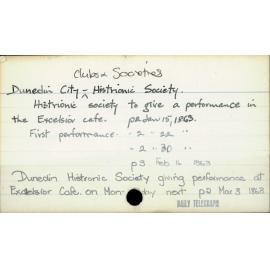 Clubs & Societies
Dunedin City - Histrionic Society.
Histrionic society to give a performance in
the Excelsior cafe. p2 Jan 15, 1863.
First performance - 2 - 22 "
- 2 - 30 "
p3 Feb 16 1863
Dunedin Histronic Society giving performance at
Excelsior Cafe. on Mon day next p2 Mar 3 1863
DAILY TELEGRAPH